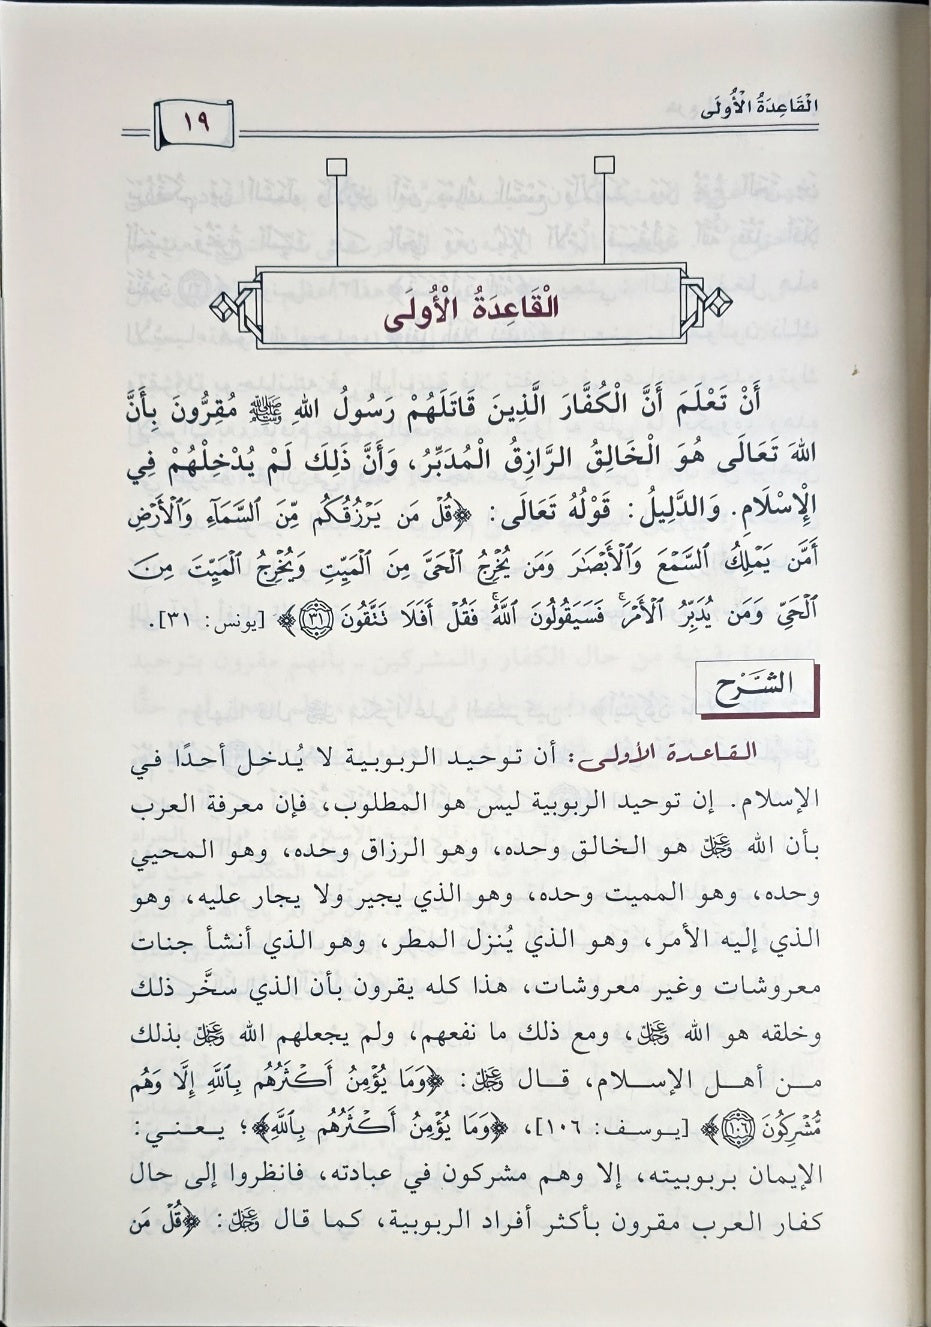 الْقَاعِدَةُ الْأُولَى
١٩
الْقَاعِدَةُ الْأُولَى
أَنْ تَعْلَمَ أَنَّ الْكُفَّارَ الَّذِينَ قَاتَلَهُمْ رَسُولُ اللهِ ﷺ مُقِرُّونَ بِأَنَّ
اللهَ تَعَالَى هُوَ الْخَالِقُ الرَّازِقُ الْمُدَبِّرُ، وَأَنَّ ذَلِكَ لَمْ يُدْخِلْهُمْ فِي
الْإِسْلَامِ. وَالدَّلِيلُ: قَوْلُهُ تَعَالَى: ﴿قُلْ مَن يَرْزُقُكُم مِّنَ ٱلسَّمَآءِ وَٱلْأَرْضِ
أَمَّن يَمْلِكُ ٱلسَّمْعَ وَٱلْأَبْصَٰرَ وَمَن يُخْرِجُ ٱلْحَىَّ مِنَ ٱلْمَيِّتِ وَيُخْرِجُ ٱلْمَيِّتَ مِنَ
ٱلْحَىِّ وَمَن يُدَبِّرُ ٱلْأَمْرَ ۚ فَسَيَقُولُونَ ٱللَّهُ ۚ فَقُلْ أَفَلَا تَتَّقُونَ ٣١﴾ [يونس: ٣١].
الشَّرْح
القاعدة الأولى: أن توحيد الربوبية لا يُدخل أحدًا في
الإسلام. إن توحيد الربوبية ليس هو المطلوب، فإن معرفة العرب
بأن الله عَزَّ وَجَلَّ هو الخالق وحده، وهو الرزاق وحده، وهو المحيي
وحده، وهو المميت وحده، وهو الذي يجير ولا يجار عليه، وهو
الذي إليه الأمر، وهو الذي يُنزل المطر، وهو الذي أنشأ جنات
معروشات وغير معروشات، هذا كله يقرون بأن الذي سخَّر ذلك
وخلقه هو الله عَزَّ وَجَلَّ، ومع ذلك ما نفعهم، ولم يجعلهم الله عَزَّ وَجَلَّ بذلك
من أهل الإسلام، قال عَزَّ وَجَلَّ: ﴿وَمَا يُؤْمِنُ أَكْثَرُهُم بِٱللَّهِ إِلَّا وَهُم
مُّشْرِكُونَ ١٠٦﴾ [يوسف: ١٠٦]، ﴿وَمَا يُؤْمِنُ أَكْثَرُهُم بِٱللَّهِ﴾؛ يعني:
الإيمان بربوبيته، إلا وهم مشركون في عبادته، فانظروا إلى حال
كفار العرب مقرون بأكثر أفراد الربوبية، كما قال عَزَّ وَجَلَّ: ﴿قُلْ مَن